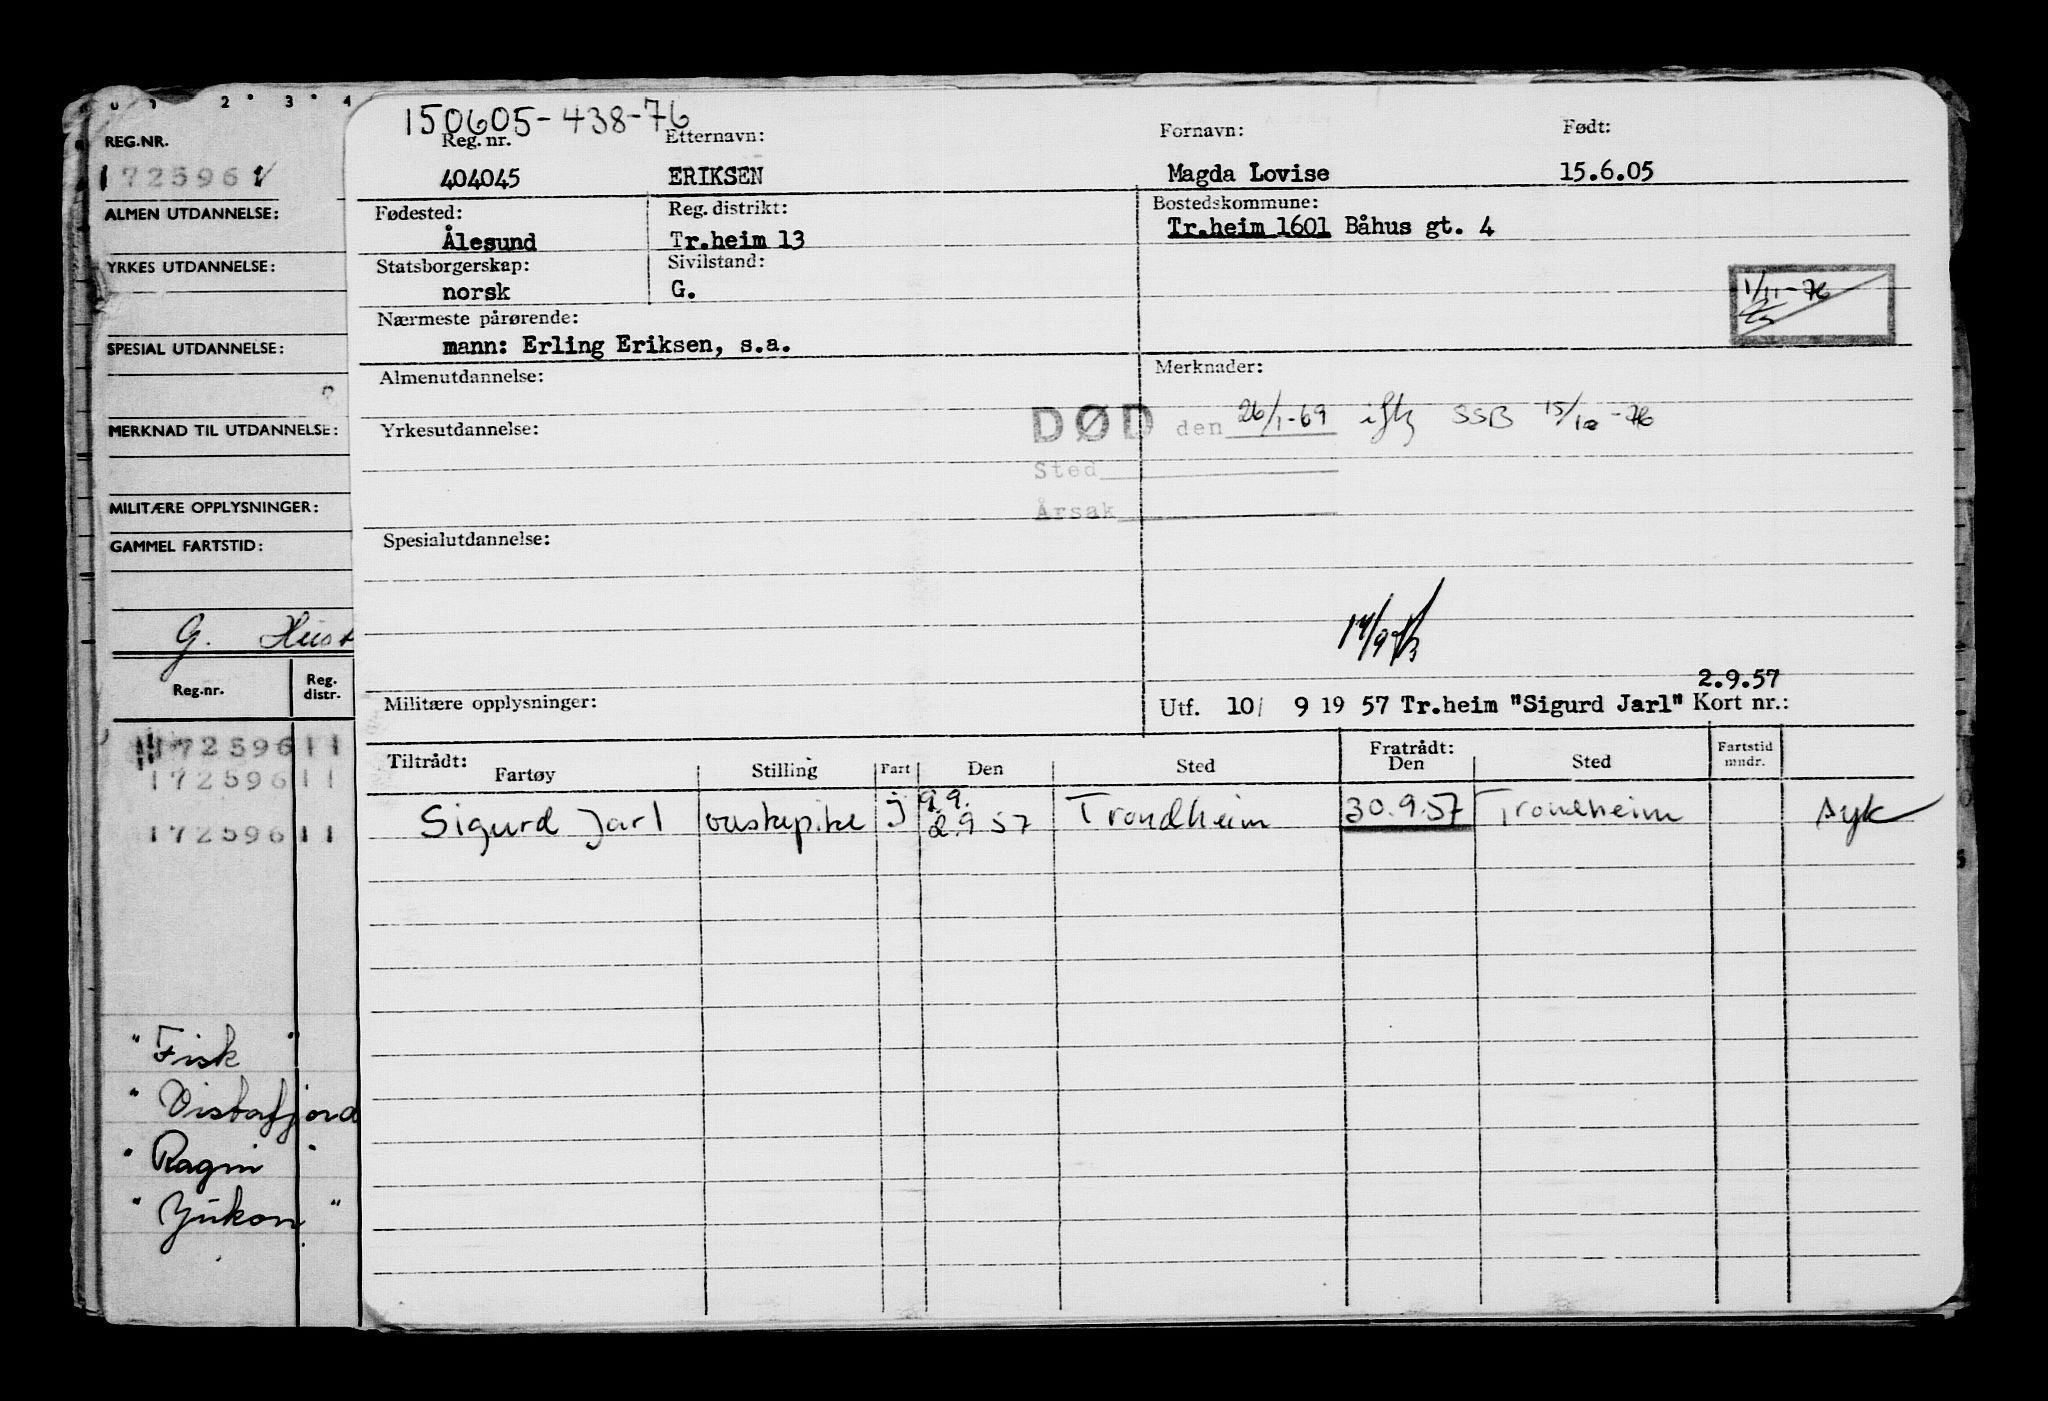 2 3 4
REG.NR.
1725961
ALMEN UTDANNELSE:
YRKES UTDANNELSE:
SPESIAL UTDANNELSE:
MERKNAD TIL UTDANNELSE:
MILITÆRE OPPLYSNINGER:
GAMMEL FARTSTID:
G.
Reg.nr. Reg. distr.
17259611
17259611
17259611
"Fisk"
"Vistafjord
"Ragni"
"Yukon"
150605-438-76
Reg. nr. Etternavn: Fornavn: Født:
404045 ERIKSEN Magda Lovise 15.6.05
Fødested: Reg. distrikt: Bostedskommune:
Ålesund Tr.heim 13 Tr.heim 1601 Båhus gt. 4
Statsborgerskap: Sivilstand:
norsk G.
1/11-76
Nærmeste pårørende:
mann: Erling Eriksen, s.a.
Almenutdannelse: Merknader:
DØD den 26/1-69 iflg SSB 15/10-76
Yrkesutdannelse:
Sted
Årsak
Spesialutdannelse:
2.9.57
Militære opplysninger: Utf. 10/ 9 19 57 Tr.heim "Sigurd Jarl" Kort nr.:
Tiltrådt: Fratrådt:
Fartøy Stilling Fart Den Sted Den Sted Fartstid mndr.
9.9.
Sigurd Jarl vaskepike j 2.9 57 Trondheim 30.9.57 Trondheim syk